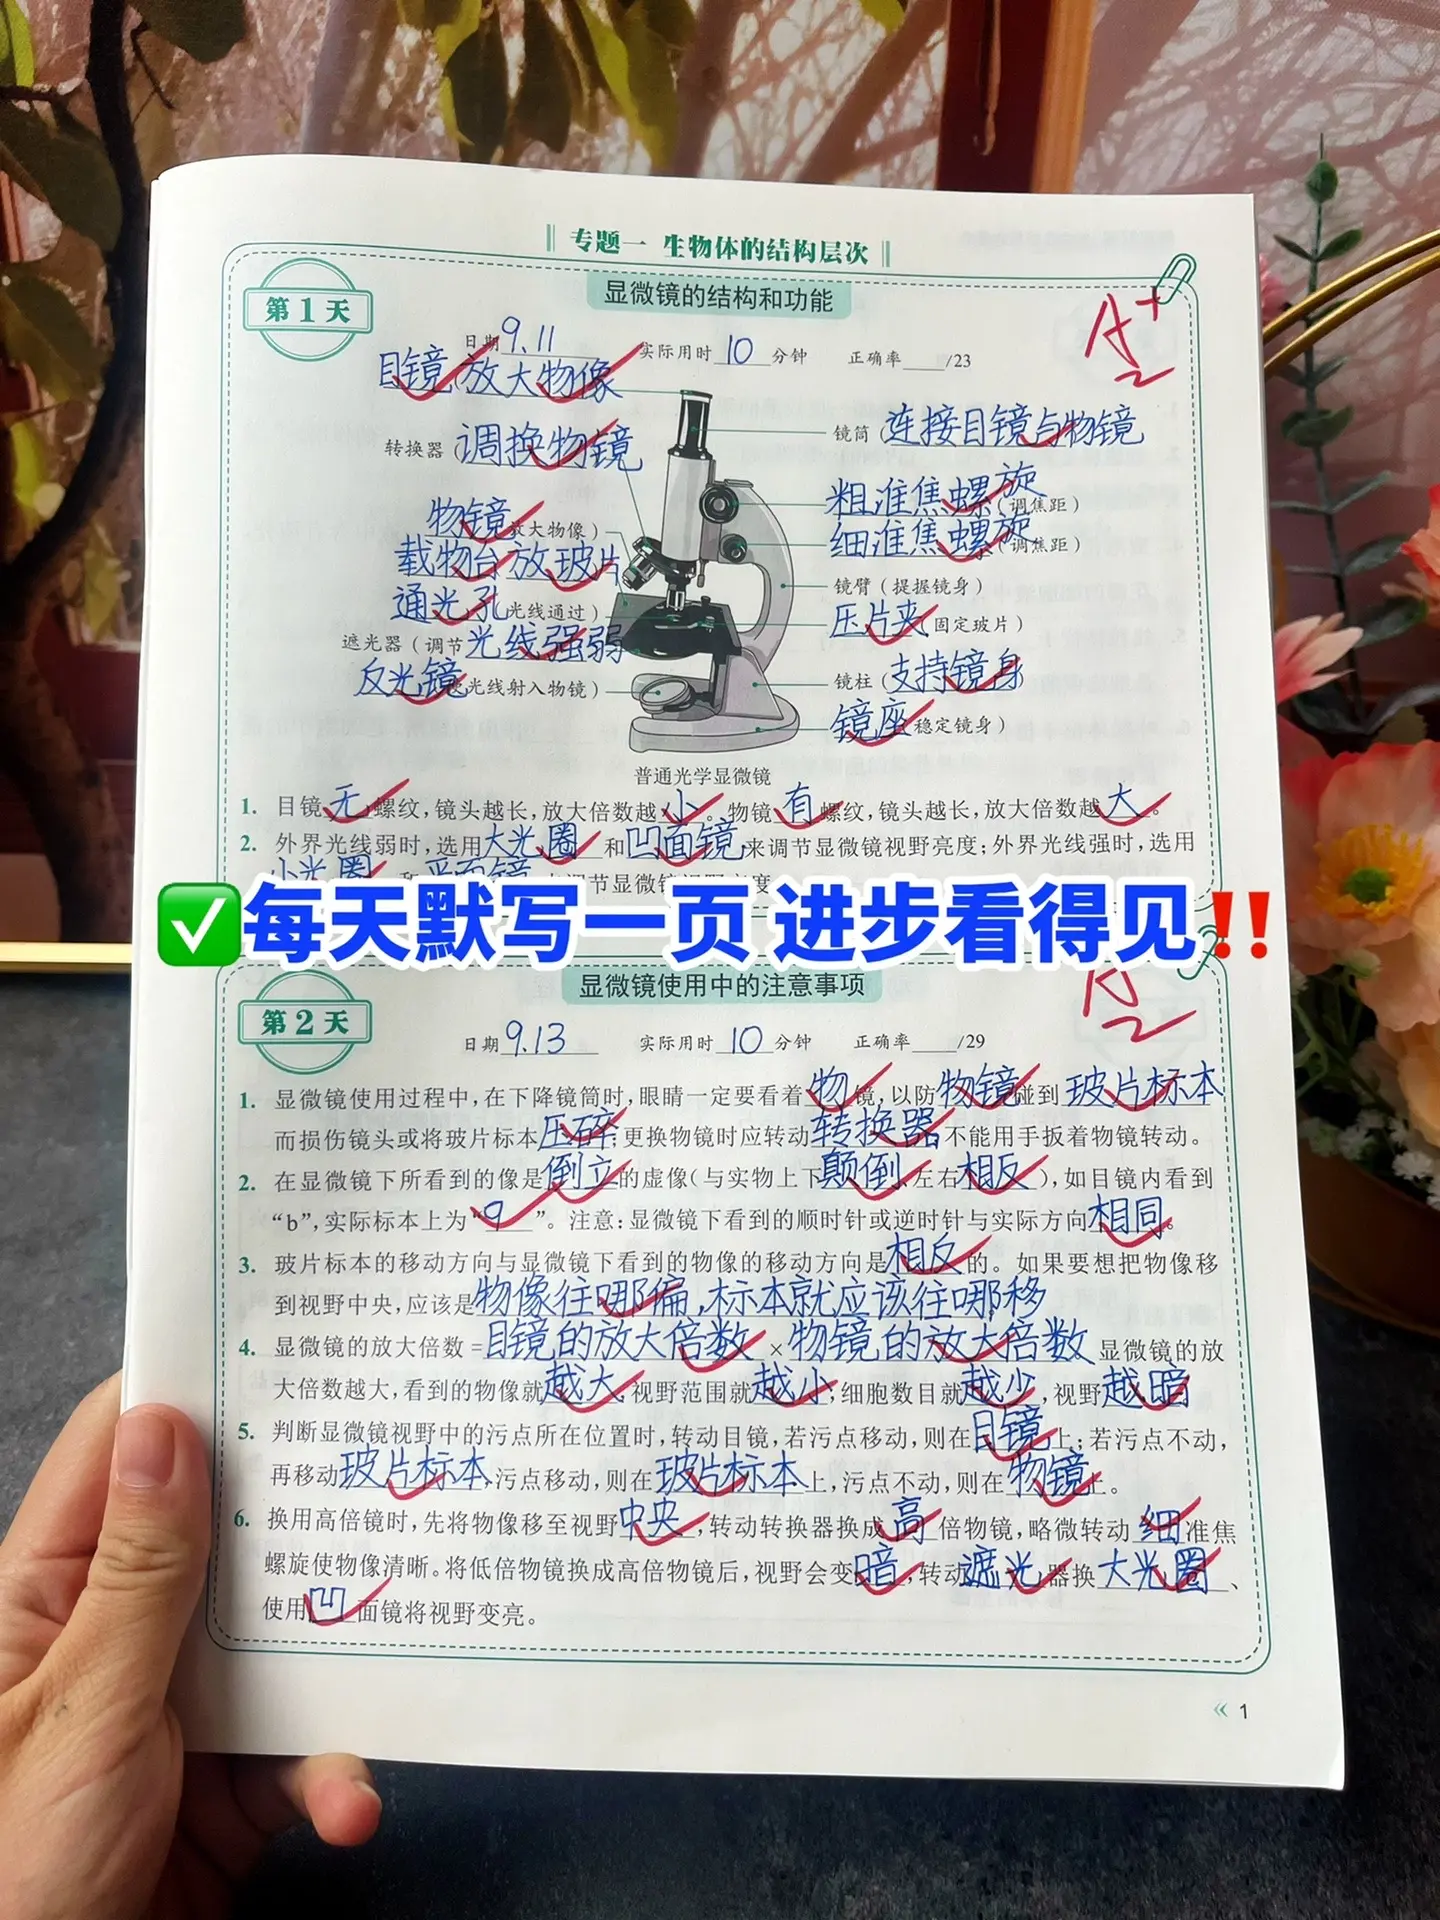 专题一 生物体的结构层次
第1天
显微镜的结构和功能
A+
日期 9.11 实际用时 10 分钟 正确率 /23
目镜(放大物像
转换器(调换物镜
物镜 放大物像)
载物台 放玻片
通光孔 光线通过)
遮光器(调节光线强弱
反光镜 光线射入物镜)
镜筒(连接目镜与物镜
粗准焦螺旋(调焦距)
细准焦螺旋(调焦距)
镜臂(提握镜身)
压片夹(固定玻片)
镜柱(支持镜身)
镜座 稳定镜身)
普通光学显微镜
1. 目镜无螺纹,镜头越长,放大倍数越小。物镜有螺纹,镜头越长,放大倍数越大。
2. 外界光线弱时,选用大光圈和凹面镜来调节显微镜视野亮度;外界光线强时,选用
小光圈 和 平面镜 调节显微镜视野亮度
✅每天默写一页 进步看得见‼️
第2天
显微镜使用中的注意事项
A
日期 9.13 实际用时 10 分钟 正确率 /29
1. 显微镜使用过程中,在下降镜筒时,眼睛一定要看着物镜,以防物镜碰到玻片标本
而损伤镜头或将玻片标本压碎;更换物镜时应转动转换器,不能用手扳着物镜转动。
2. 在显微镜下所看到的像是倒立的虚像(与实物上下颠倒、左右相反),如目镜内看到
“b”,实际标本上为“q”。注意:显微镜下看到的顺时针或逆时针与实际方向相同。
3. 玻片标本的移动方向与显微镜下看到的物像的移动方向是相反的。如果要想把物像移
到视野中央,应该是物像往哪偏,标本就应该往哪移
4. 显微镜的放大倍数=目镜的放大倍数×物镜的放大倍数 显微镜的放
大倍数越大,看到的物像就越大,视野范围就越小;细胞数目就越少,视野越暗
5. 判断显微镜视野中的污点所在位置时,转动目镜,若污点移动,则在目镜上;若污点不动,
再移动玻片标本,污点移动,则在玻片标本上,污点不动,则在物镜上。
6. 换用高倍镜时,先将物像移至视野中央,转动转换器换成高倍物镜,略微转动细准焦
螺旋使物像清晰。将低倍物镜换成高倍物镜后,视野会变暗,转动遮光器换大光圈、
使用凹面镜将视野变亮。
« 1